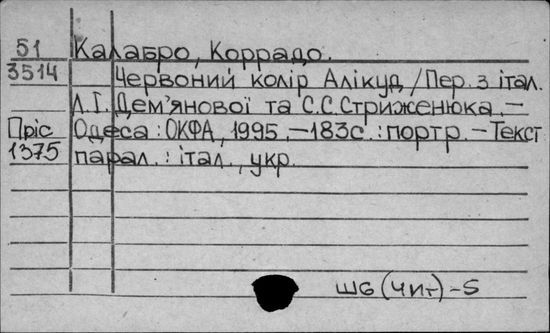 51 Калабро, Коррадо.
3514 Червоний колір Алікуд / Пер. з італ.
Л.Г. Дем'янової та С.С. Стриженюка. –
Пріс Одеса : ОКФА, 1995. – 183с. : портр. – Текст
1375 парал. : італ., укр.
Ш6 (чит) – 5